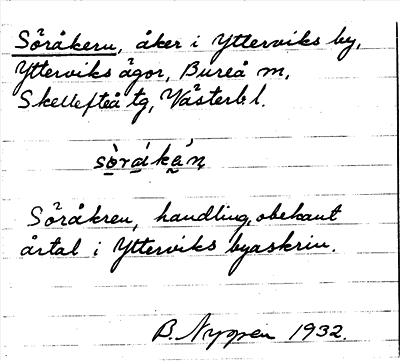 Söråkern, åker i Ytterviks by,
Ytterviks ägor, Bureå sn,
Skellefteå tg, Västerb. l.
sö̀rákän
Söråkren, handling, obekant
årtal i Ytterviks byaskrin.
B. Nygren 1932.